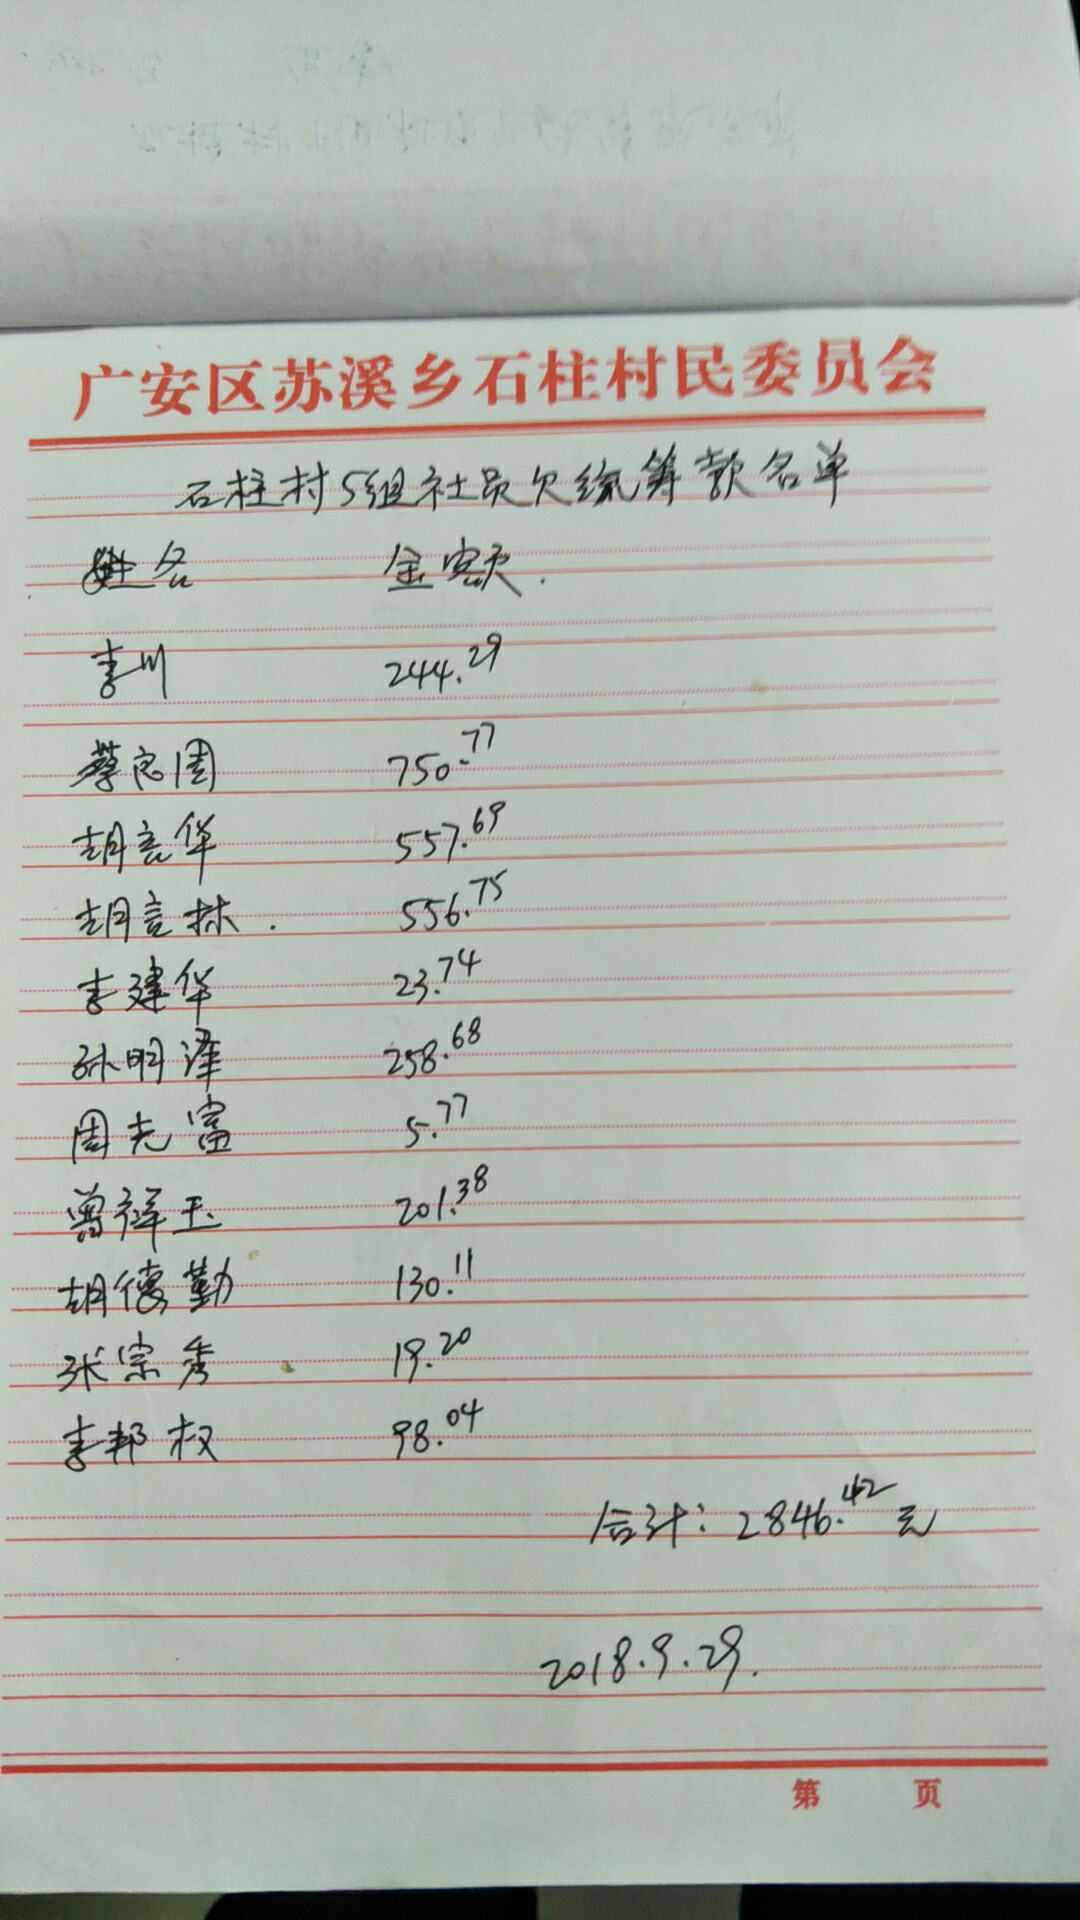 广安区苏溪乡石柱村民委员会
石柱村5组社员欠统筹款名单
姓名 金额.
李川 244.29
蔡良周 750.77
胡言华 557.69
胡言林. 556.75
李建华 23.74
孙明泽 258.68
周光富 5.77
曾祥玉 201.38
胡德勤 130.11
张宗秀 19.20
李邦权 98.04
合计: 2846.42元
2018.9.29.
第 页